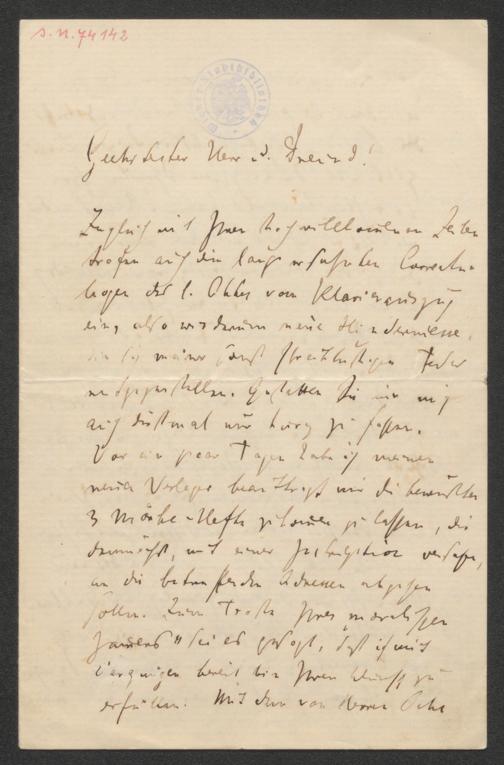 J.N. 74142
Geehrtester Herr u. Freund!
Zugleich mit Ihren hochwillkommenen Zeilen
trafen auch die lang ersehnten Correctur-
bogen des 1. Aktes vom Klavierauszug
ein, also wiederum neue Hindernisse,
die sich meiner sonst schreiblustigen Feder
entgegenstellen. Gestatten Sie mir mich
auch diesmal nur kurz zu fassen.
Vor ein paar Tagen habe ich meinen
neuen Verleger beauftragt mir die bewußten
3 Mörike-Hefte zukommen zu lassen, die
demnächst, mit einer versehen,
an die betreffenden Adressen abgehen
sollen. Zum Troste Ihres moralischen
Jammers" sei es gesagt, daß ich mit
Vergnügen bereit bin Ihren Wunsch zu
erfüllen. Mit den von Herrn